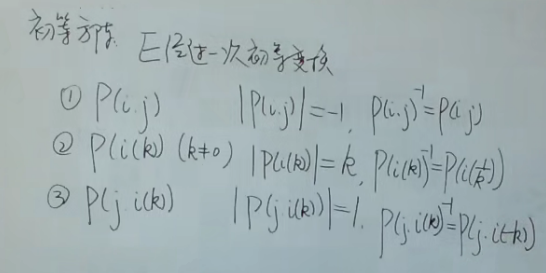 初等方阵 E经过一次初等变换
① P(i.j) |P(i.j)|=-1, P(i.j)⁻¹=P(i.j)
② P(i(k)) (k≠0) |P(i(k))|=k, P(i(k))⁻¹=P(i(1/k))
③ P(j.i(k)) |P(j.i(k))|=1. P(j.i(k))⁻¹=P(j.i(-k))